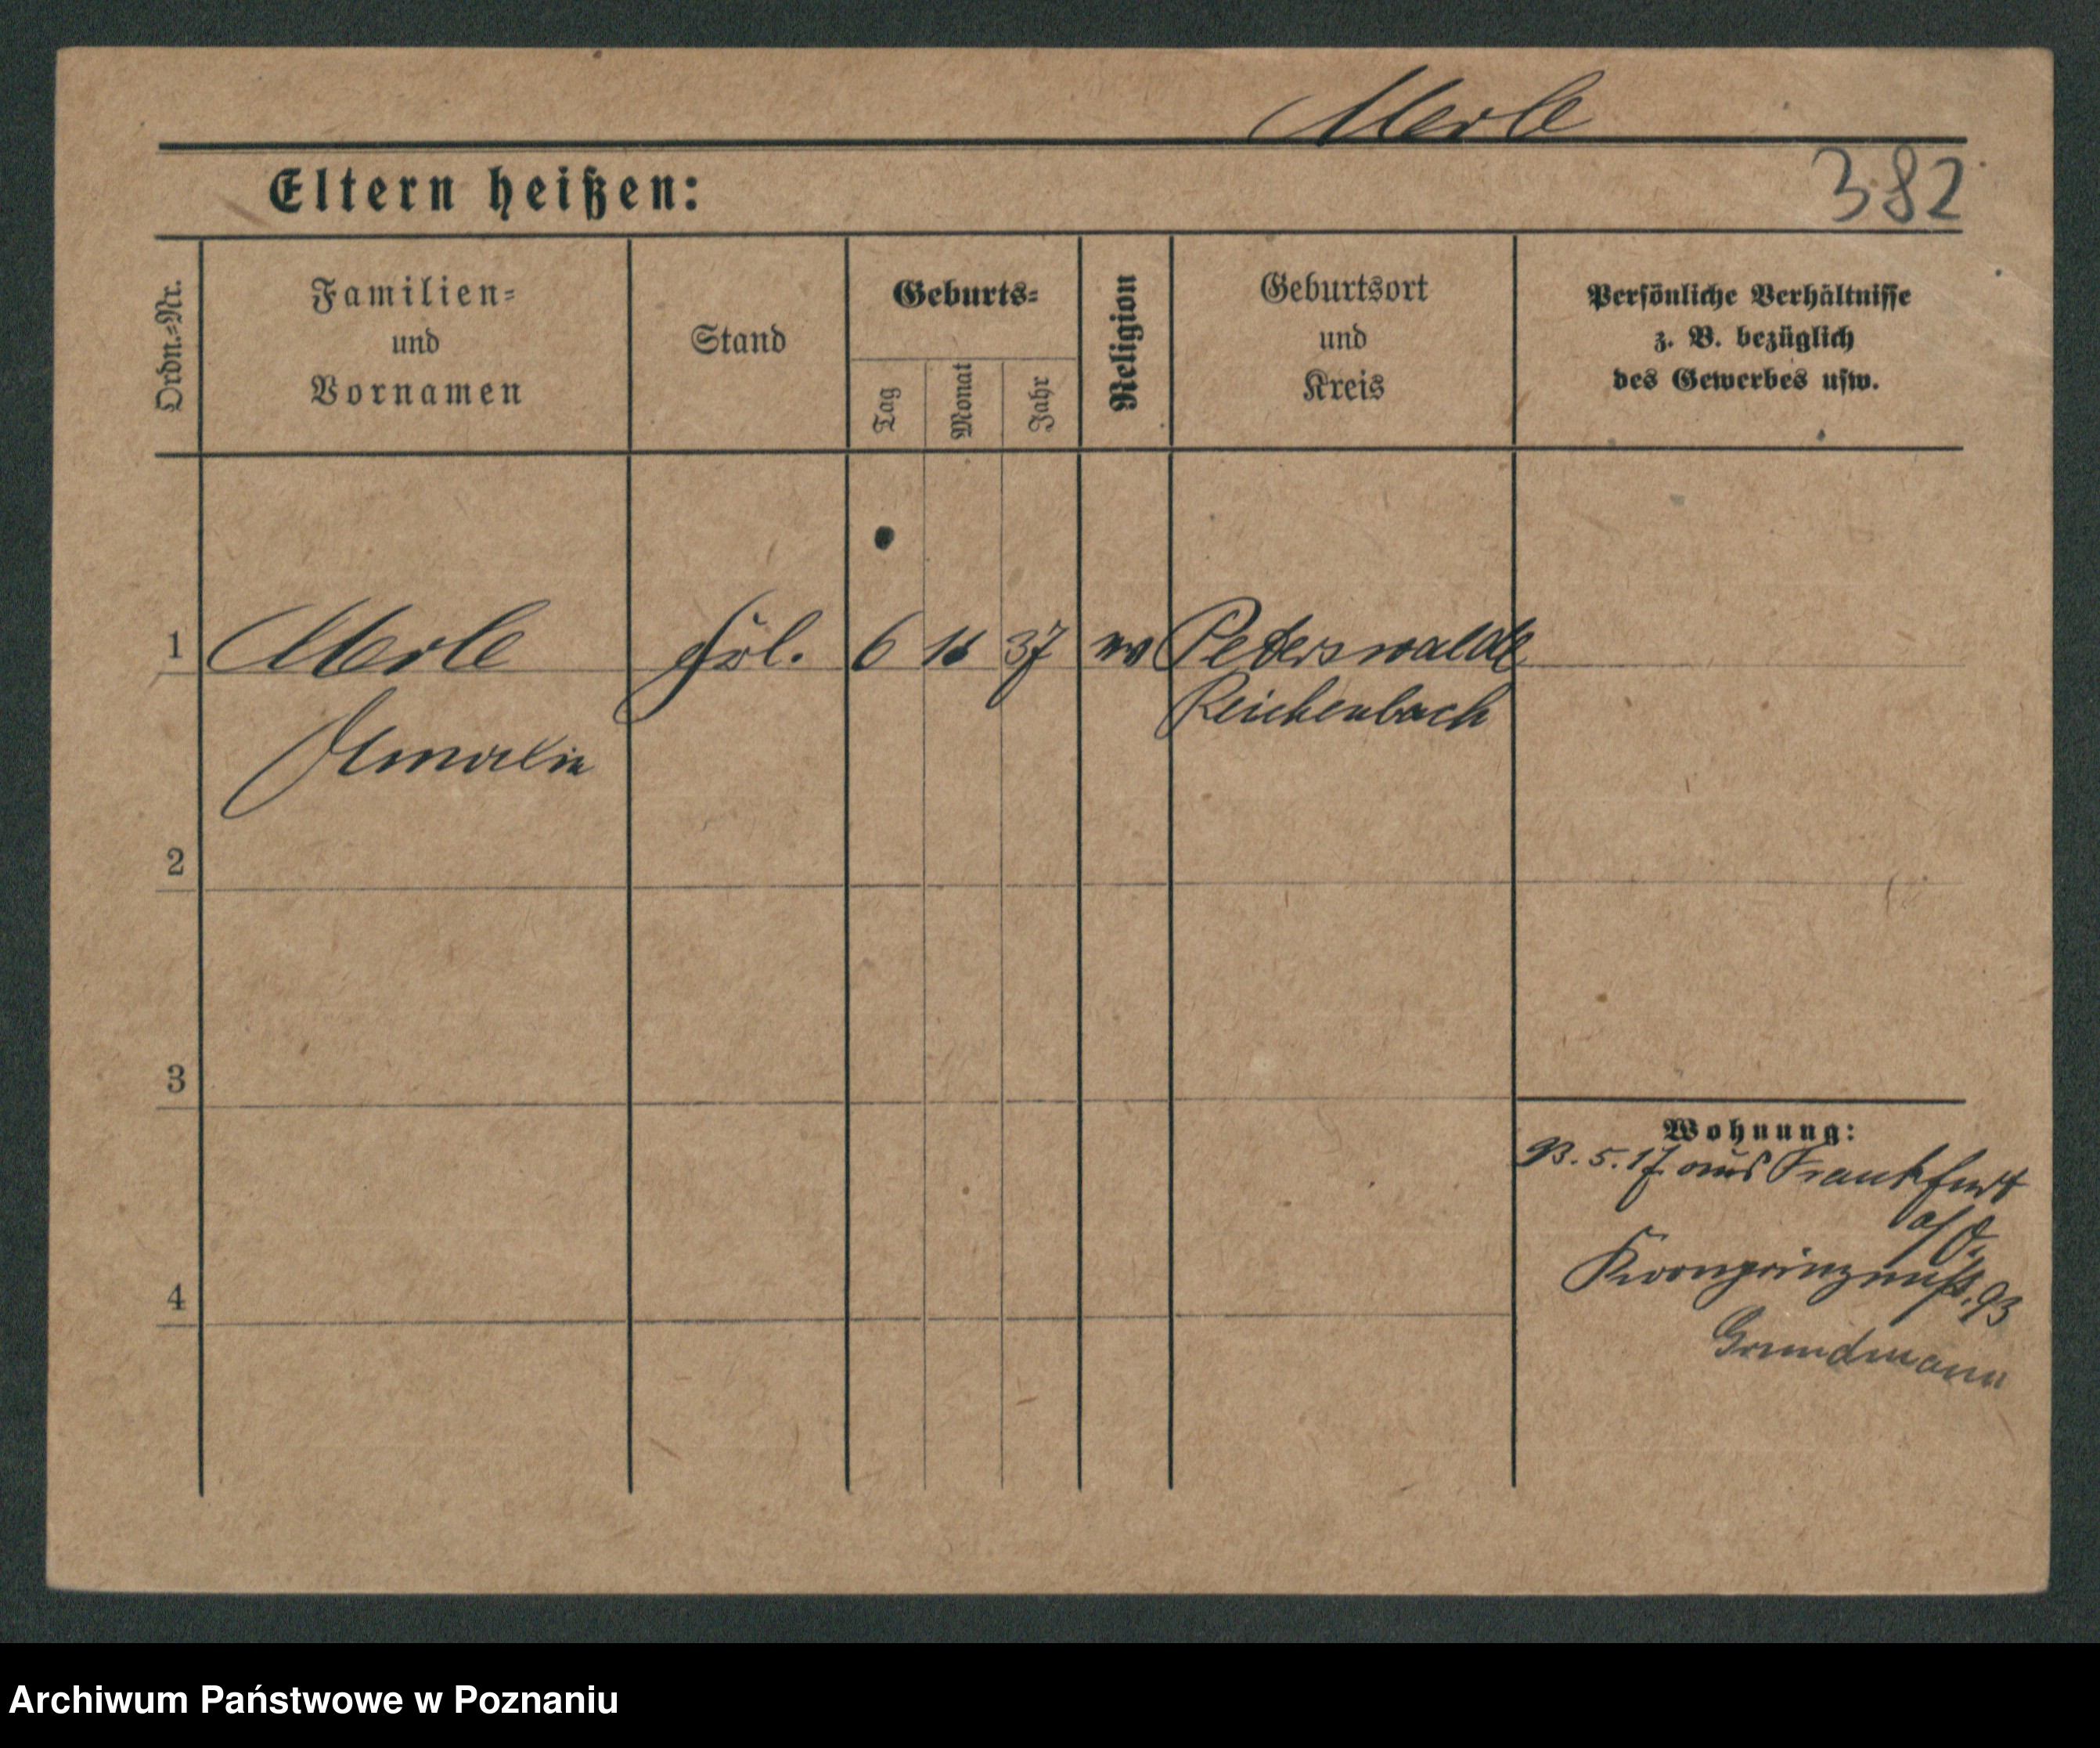 Merle
382
Eltern heißen:
Ordn.-Nr.
Familien-
und
Vornamen
Stand
Geburts-
Tag
Monat
Jahr
Religion
Geburtsort
und
Kreis
Persönliche Verhältnisse
z. B. bezüglich
des Gewerbes usw.
1 Merle Frl. 6 37 ev Peterswalde
Reichenbach
Amalie
2
3
4
Wohnung:
5. 17 aus Frankfurt
a/O.
Kronprinzenstr. 93
Grundmann
Archiwum Państwowe w Poznaniu